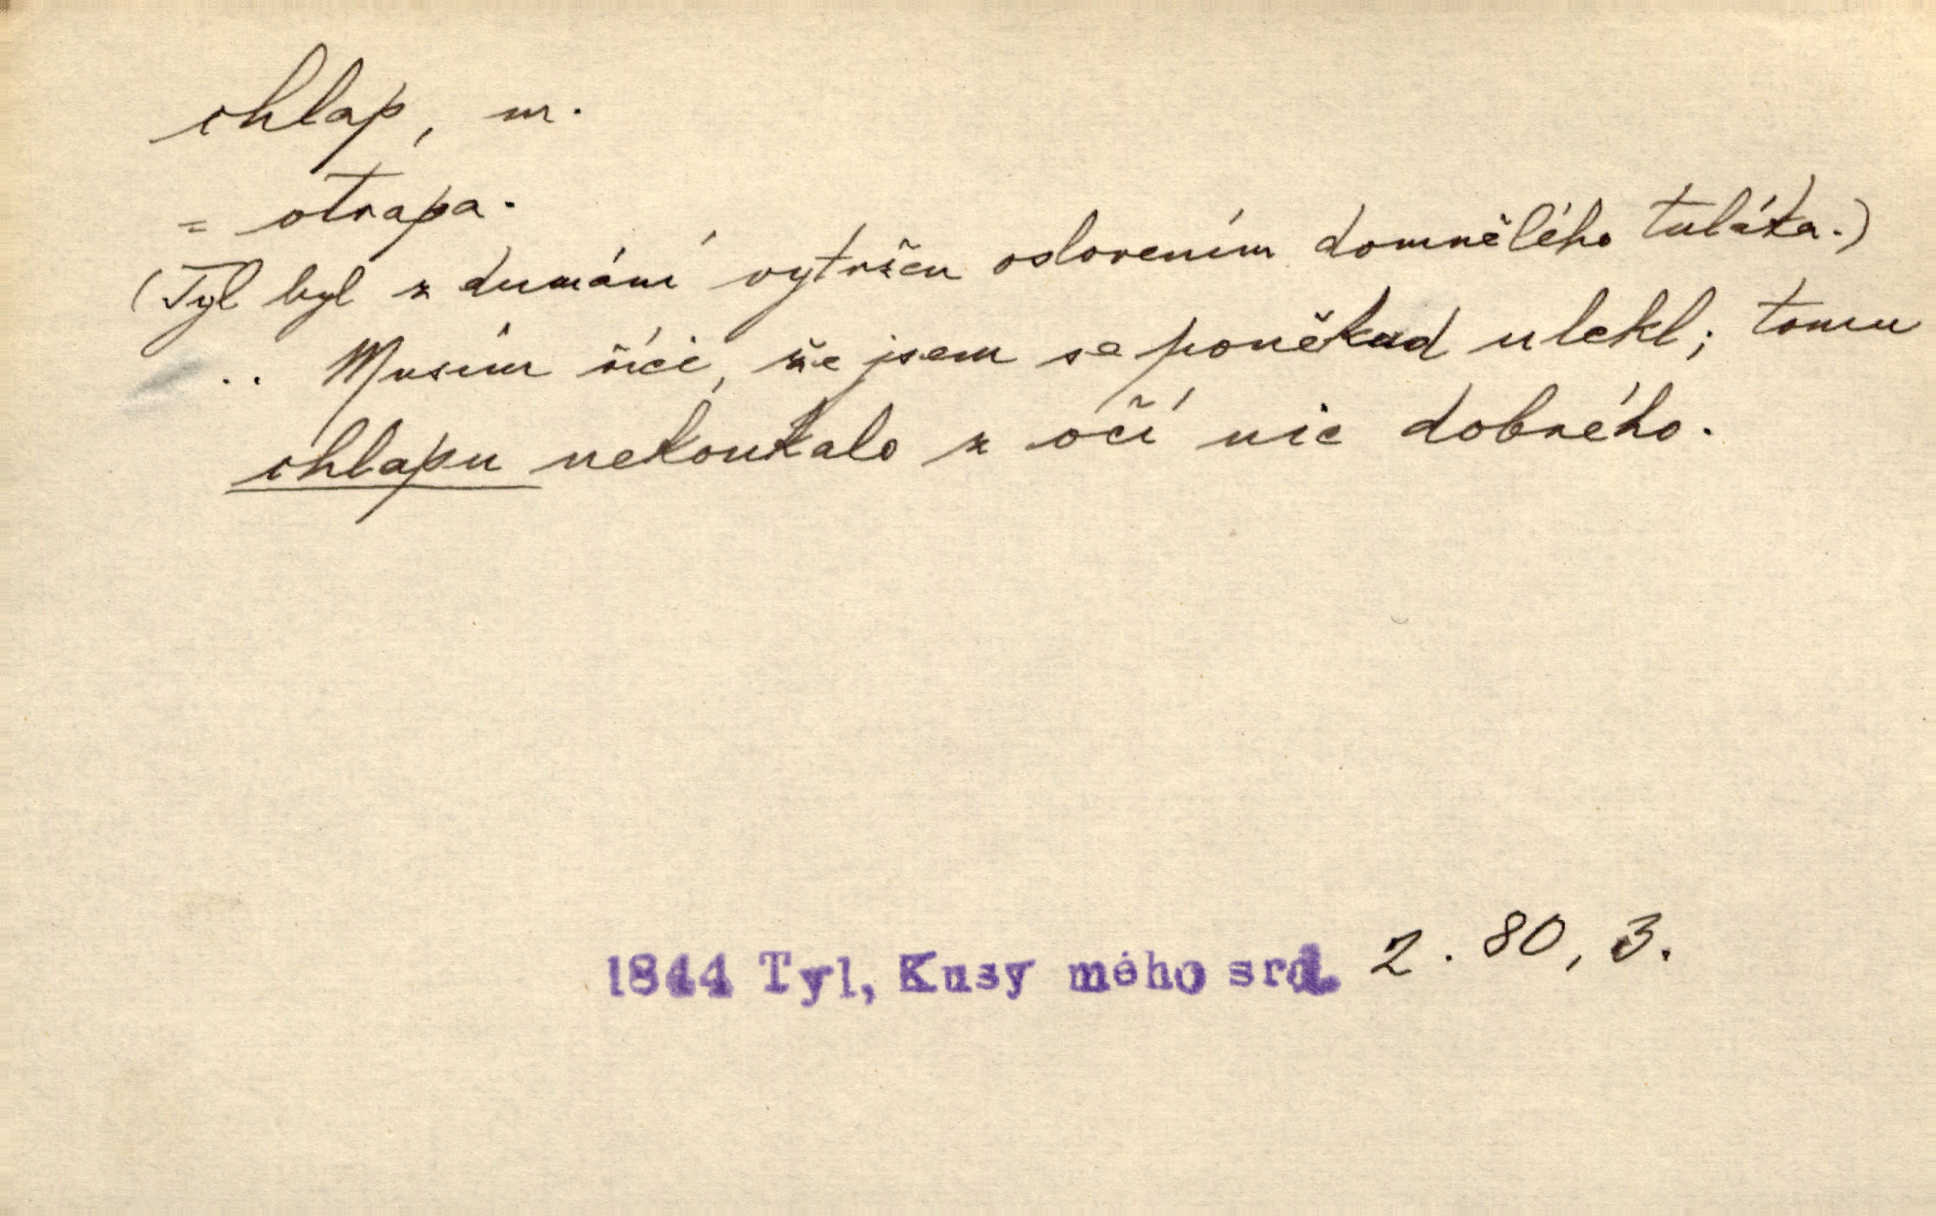 chlap, m.
= otrapa.
(Tyl byl z dumání vytržen oslovením domnělého tuláka.)
.. Musím říci, že jsem se poněkud ulekl; tomu
chlapu nekoukalo z očí nic dobrého.
1844 Tyl, Kusy mého srd. 2. 80, 3.